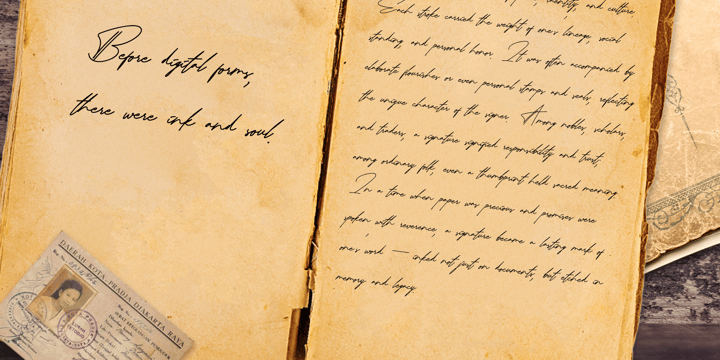 Before digital forms,
there were ink and soul.
DAERAH KOTA PRADJA DJAKARTA RAYA
identity, and culture.
Each stroke carried the weight of one's lineage, social
standing, and personal honor. It was often accompanied by
elaborate flourishes or even personal stamps and seals, reflecting
the unique character of the signer. Among nobles, scholars,
and traders, a signature signified responsibility and trust,
among ordinary folk, even a thumbprint held sacred meaning.
In a time when paper was precious and promises were
spoken with reverence, a signature became a lasting mark of
one's word — inked not just on documents, but etched in
memory and legacy.